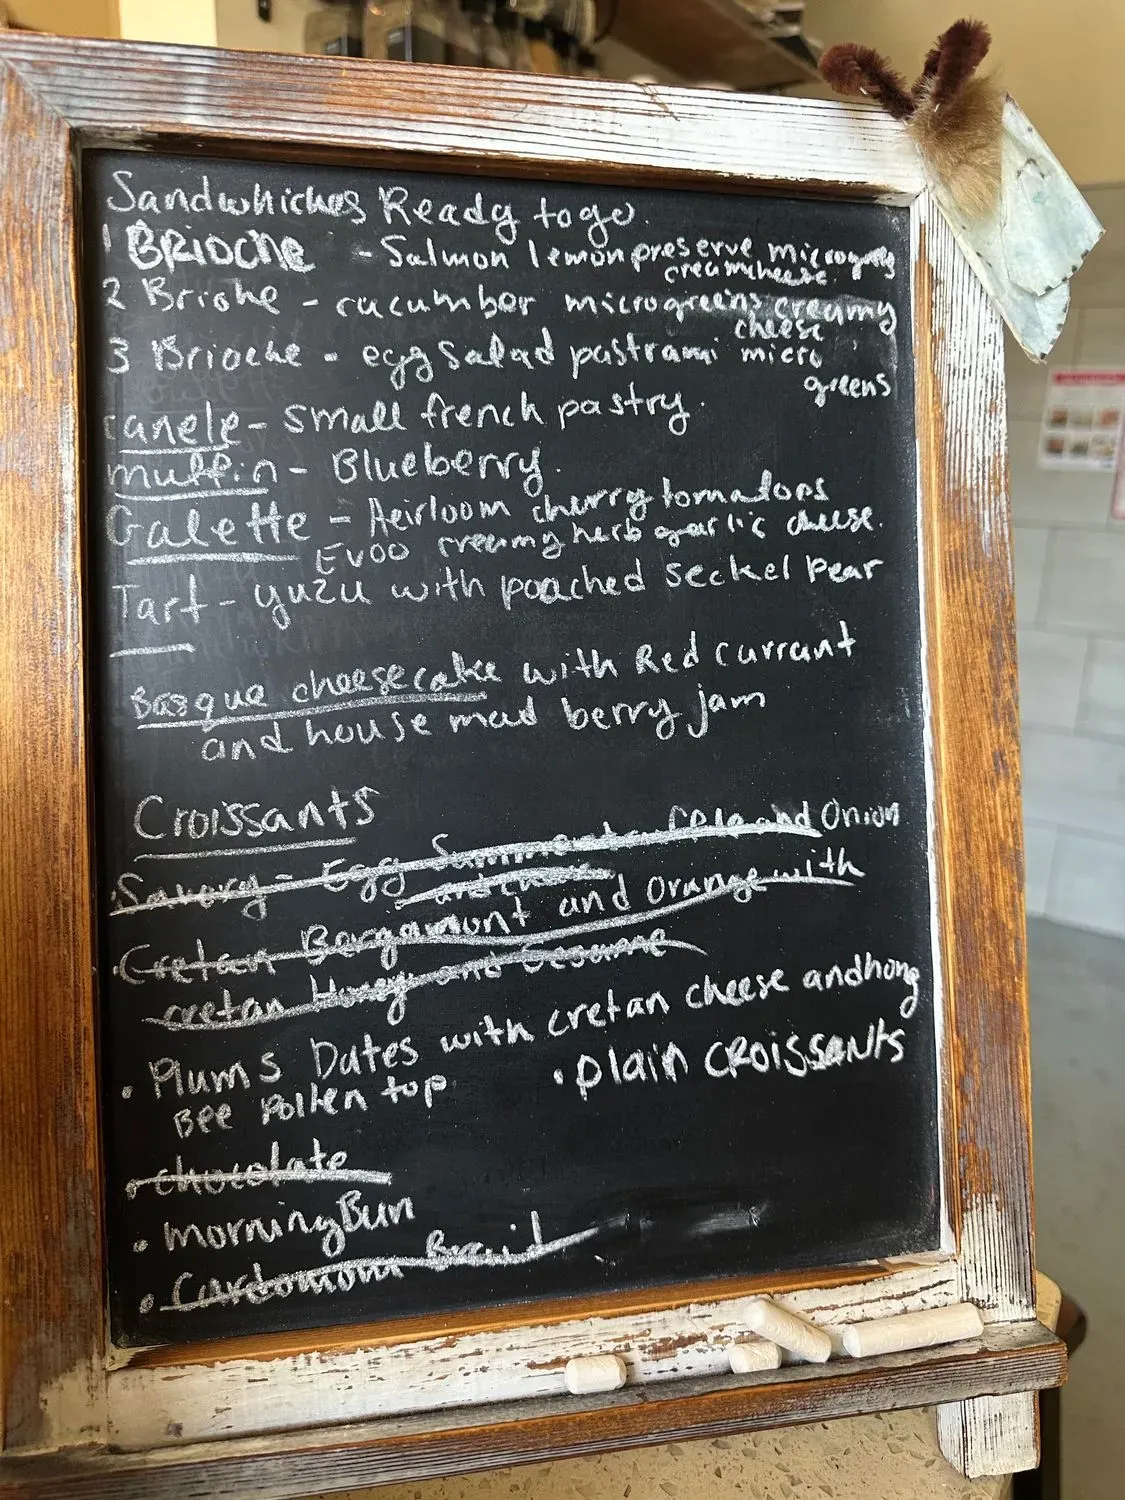 Sandwhiches Ready to go.
1 BRIOCHE - Salmon lemon preserve microgreens
creamcheese
2 Brioche - cucumber microgreens creamy
cheese
3 Brioche - egg salad pastrami micro
greens
canele - small french pastry.
muffin - Blueberry.
Galette - Heirloom cherry tomatoes
EVOO creamy herb garlic cheese.
Tart - yuzu with poached seckel pear
Basque cheesecake with Red currant
and house mad berry jam
Croissants
Savory - Egg and Onion
and
Cretan Bargamont and Orange with
cretan Honey and Sesame
• Plums Dates with cretan cheese and hony
Bee Pollen top
• plain CROISSANTS
• chocolate
• morning Bun
• Cardomom Braid